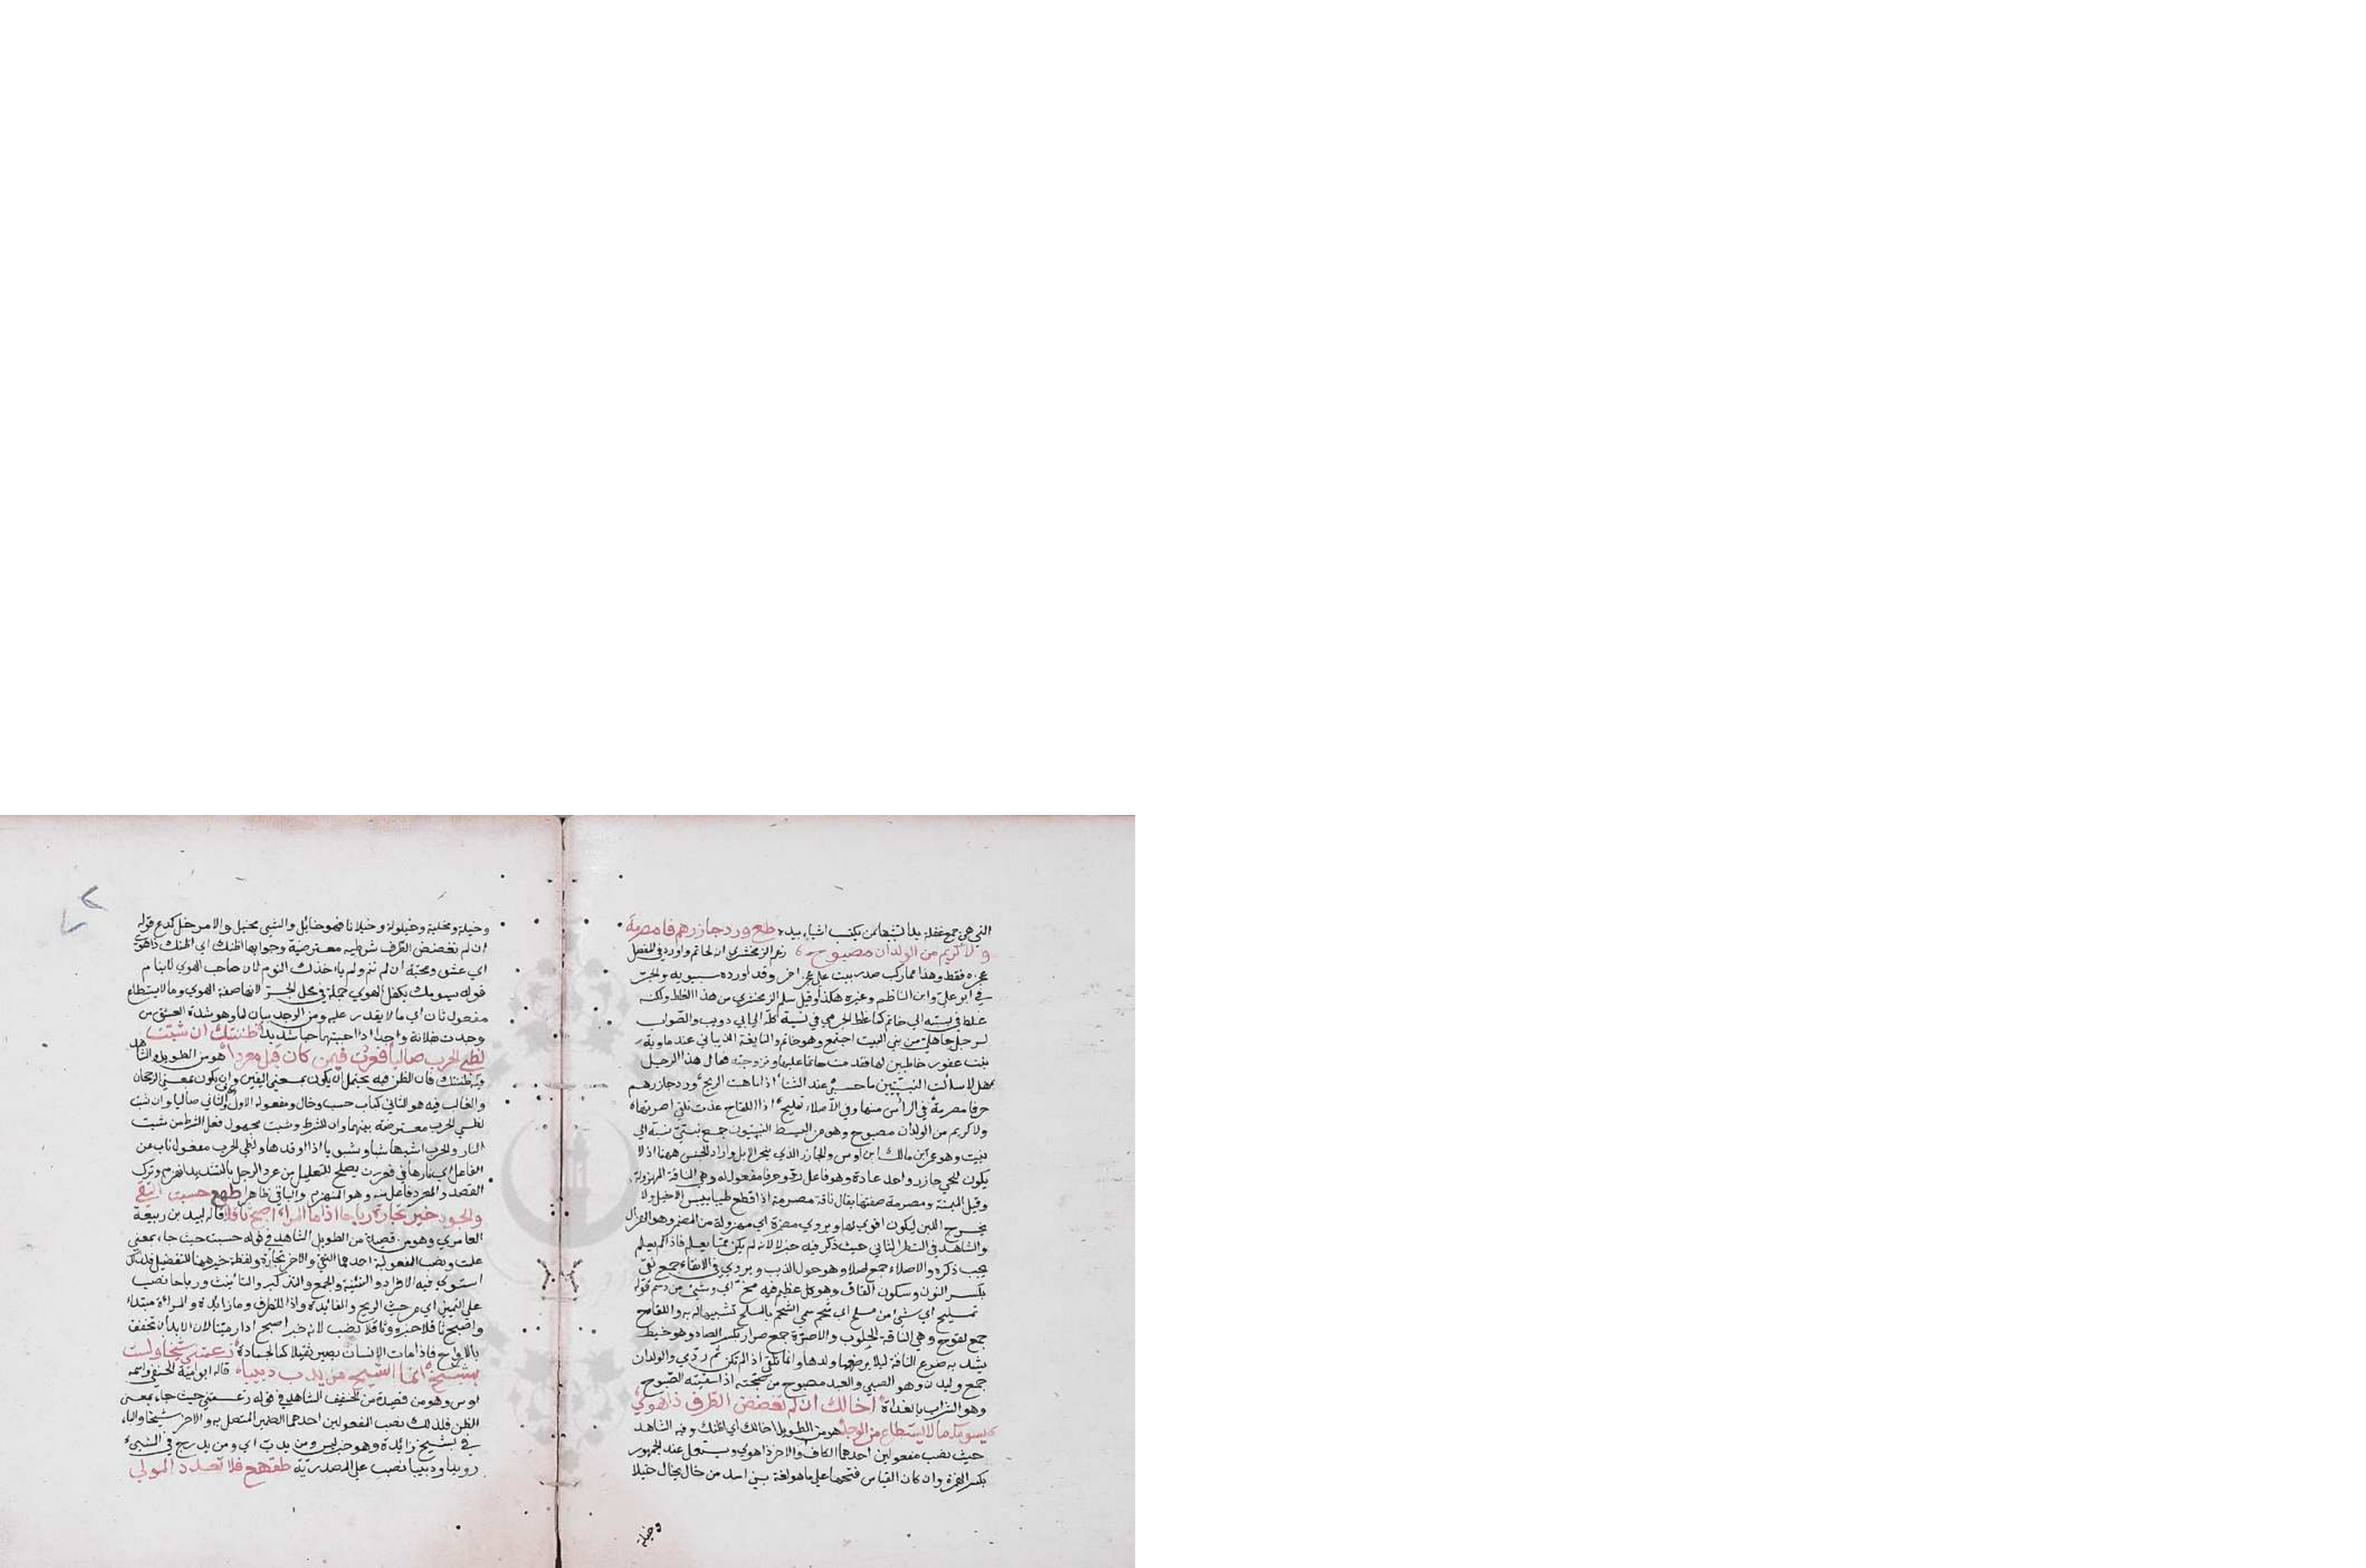 النبي هي جمع غفلة بدا تشبيها بمن يكتب اشياء بيده طع ورد جازرهم حرفا مصرمة
ولا كريم من الولدان مصبوح زعم الزمخشري انه لحاتم واورد في المفصل
عجزه فقط وهذا مما ركب صدر بيت على عجز اخر وقد اورده سيبويه والجر
في ابو علي وابن الناظم وغيره هكذا وقيل سلم الزمخشري من هذا الغلط ولكنه
غلط في نسبته الي حاتم كما غلط الجرمي في نسبة كله الي ابي ذويب والصواب
لرجل جاهلي من بني النبيت اجتمع وهو حاتم والنابغة الذبياني عند ماوية
بنت عفزر خاطبين لها فقدمت حاتما عليهما وتزوجته فقال هذا الرجل
هلا سالت النبيتيين ما حسبي عند الشتاء اذا ما هبت الريح ورد جازرهم
حرفا مصرمة في الراس منها وفي الاصلاء تمليح اذا اللقاح غدت ملقي اصرتها
ولا كريم من الولدان مصبوح وهو من البسيط النبيتيون جمع نبيتي نسبة الي
نبيت وهو عمرو بن مالك ابن اوس والجازر الذي ينحر الابل واراد الجنس ههنا اذ لا
يكون للحي جازر واحد عادة وهو فاعل رد وحرفا مفعوله وهي الناقة المهزولة
وقيل المسنة ومصرمة صفتها يقال ناقة مصرمة اذا قطع طبياها ليبس الاحليل ولا
يخرج اللبن ليكون اقوي لها ويروي مضرة اي مهزولة من الضر وهو الهزال
والشاهد في الشطر الثاني حيث ذكر فيه خبر لا لانه لم يكن مما يعلم فاذا لم يعلم
يجب ذكره والاصلاء جمع صلا وهو حول الذنب ويروي في الانقاء جمع نقي
بكسر النون وسكون القاف وهو كل عظم فيه مخ اي وشيئ من دسم قوله
تمليح اي شيئ من ملح اي شحم سمي الشحم بالملح تشبيها له به واللقاح
جمع لقوح وهي الناقة الحلوب والاصرة جمع صرار بكسر الصاد وهو خيط
يشد به ضرع الناقة ليلا يرضعها ولدها وانما تلقي اذا لم تكن ثم ردي والولدان
جمع وليد وهو الصبي والعبد مصبوح من صبحته اذا سقيته الصبوح
وهو الشراب بالغداة اخالك ان لم تغضض الطرف ذا هوي
يسومك ما لا يستطاع من الوجد هو من الطويل اخالك اي اظنك وفيه الشاهد
حيث نصب مفعولين احدهما الكاف والاخر ذا هوي ويستعمل عند الجمهور
بكسر الهمزة وان كان القياس فتحها علي ما هو لغة بني اسد من خال يخال خيلا
وخيلة
وخيلة ومخيلة وخيلولة وخيلانا فهو خايل والشي مخيل والامر خل كدع قوله
ان لم تغضض الطرف شرطية معترضة وجوابها اظنك اي اظنك ذا هوي
اي عشق ومحبة ان لم تنم ولم ياخذك النوم لان صاحب الهوي لا ينام
قوله يسومك يكفل الهوي جملة في محل الجر لانها صفة الهوي وما لا يستطاع
مفعول ثان اي ما لا يقدر عليه ومن الوجد بيان لما وهو شدة العشق من
وجدت بفلانة واجدا اذا احببتها حبا شديدا ظننتك ان شبت
لظي الحرب صاليا فعردت فيمن كان قبل معردا هو من الطويل والشاهد
فيه ظننتك فان الظن فيه يحتمل ان يكون بمعني اليقين وان يكون بمعني الرجحان
والغالب فيه هو الثاني كباب حسب وخال ومفعوله الاول والثاني صاليا وان شبت
لظي الحرب معترضة بينهما وان للشرط وشبت مجهول فعل الشرط من شببت
النار والحرب اشبها شبا وشبوبا اذا اوقدها ولظي الحرب مفعول ناب عن
الفاعل اي نارها في فعردت يصلح للتعليل من عرد الرجل بالتشديد انهزم وترك
القصد والمعرد فاعل منه وهو المنهزم والباقي ظاهر طهع حسبت التقي
والجود خير تجارة رباحا اذا ما المراء اصبح ثاقلا قاله لبيد بن ربيعة
العامري وهو من قصيدة من الطويل الشاهد في قوله حسبت حيث جاء بمعني
علمت ونصب المفعولية احدهما التقي والاخر تجارة ولفظة خير ههنا للتفضيل فلذلك
استوي فيه الافراد والتثنية والجمع والتذكير والتانيث ورباحا نصب
علي التميز اي من حيث الربح والفائدة واذا للظرف وما زائدة والمراة مبتداء
واصبح ثاقلا خبره وثاقلا نصب لانه خبر اصبح اذا صار ميتا لان الابدان تخفف
بالارواح فاذا مات الانسان يصير ثقيلا كالجماد زعمتني شيخا ولست
بشيخ انما الشيخ من يدب دبيبا قاله ابو امية الحنفي واسمه
اوس وهو من قصيدة من الخفيف الشاهد في قوله زعمتني حيث جاء بمعني
الظن فلذلك نصب المفعولين احدهما الضمير المتصل به والاخر شيخا والباء
في بشيخ زائدة وهو خبر ليس ومن يدب اي ومن يدرج في الشيء
رويدا ودبيبا نصب علي المصدرية طقهع فلا تعدد المولي